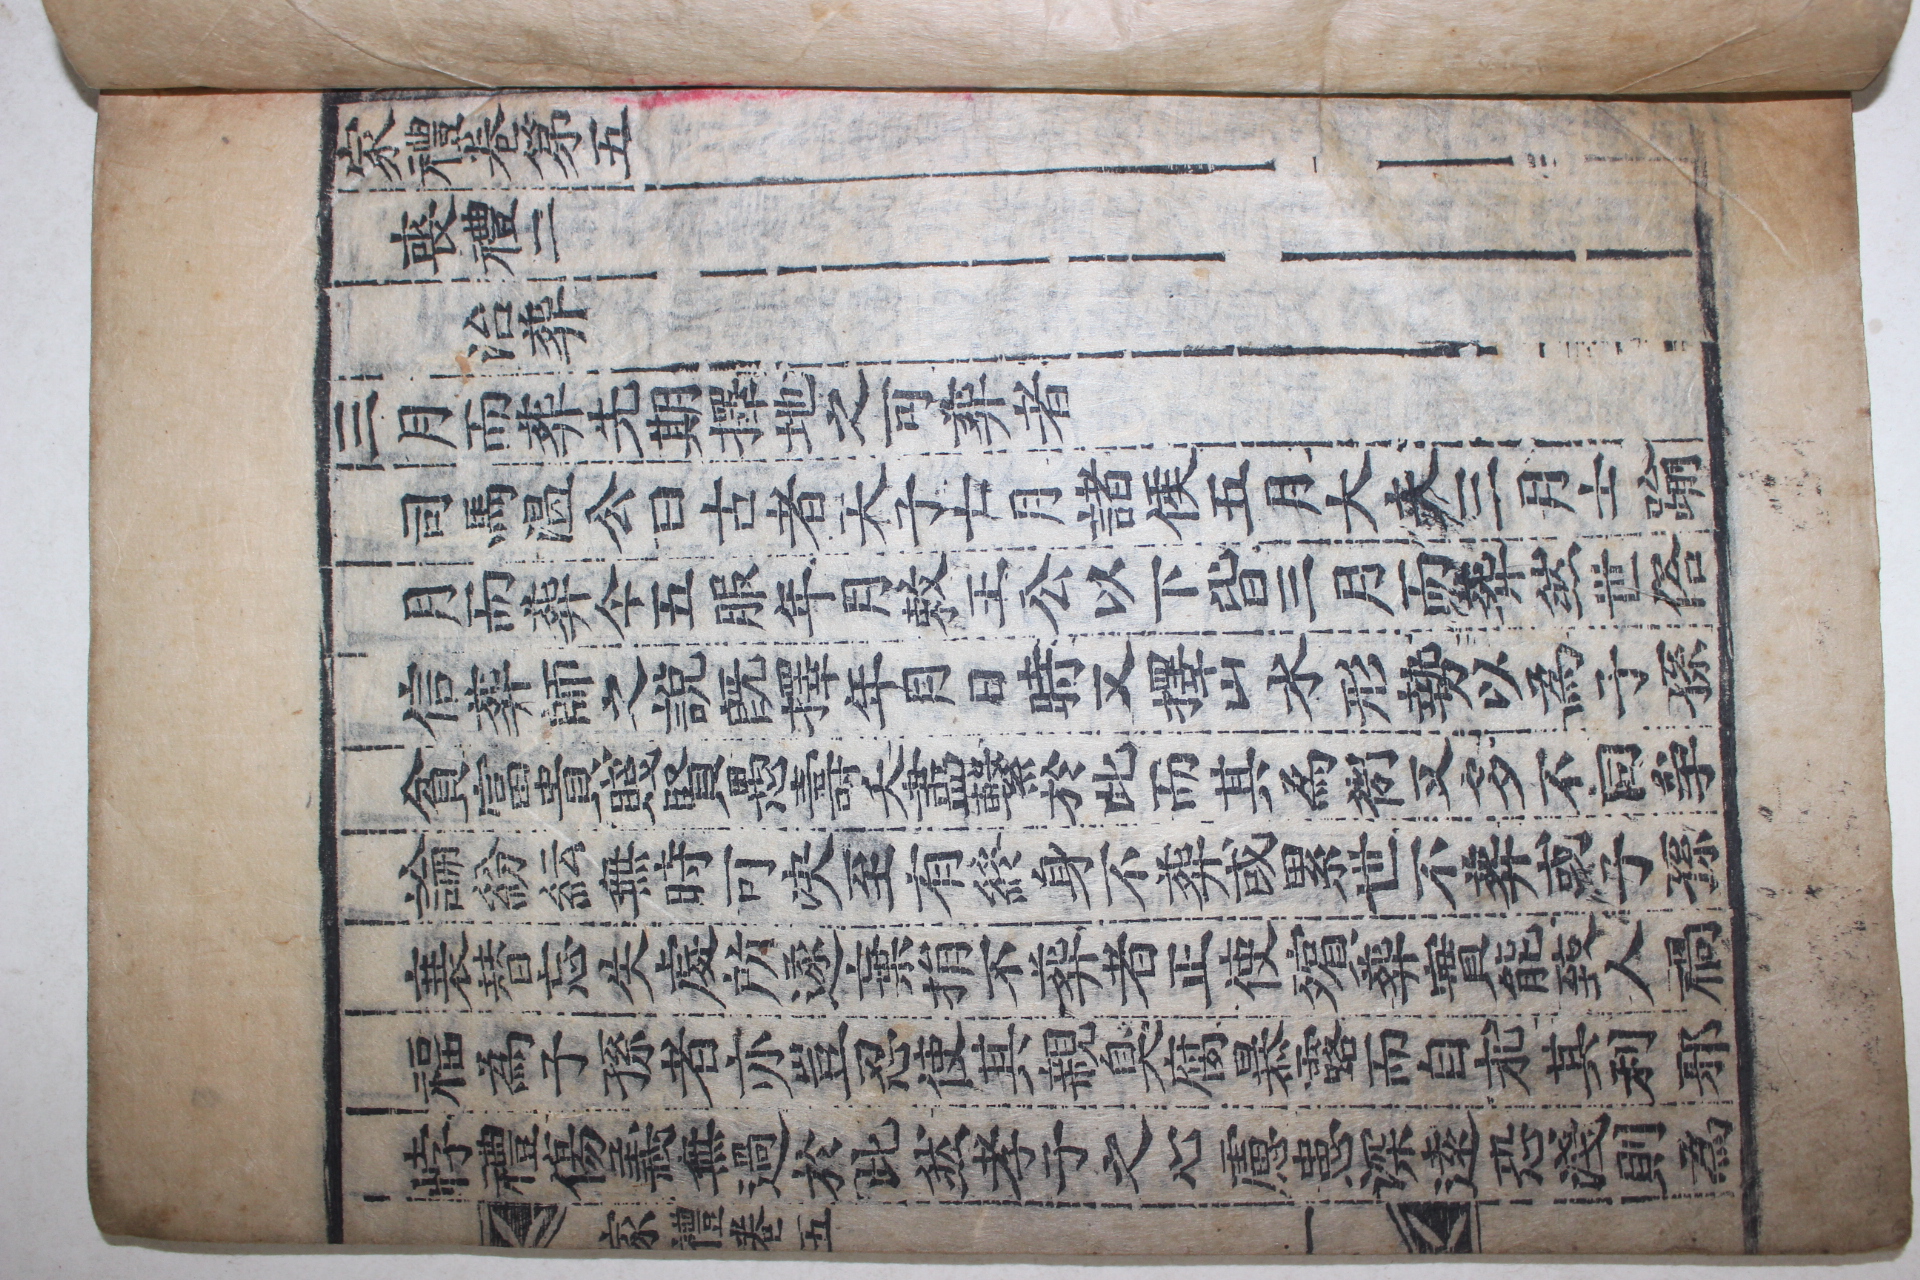 家禮卷第五
喪禮二
治葬
三月而葬先期擇地之可葬者
司馬溫公曰古者天子七月諸侯五月大夫三月士踰
月而葬今五服年月敕王公以下皆三月而葬然世俗
信葬師之說旣擇年月日時又擇山水形勢以為子孫
貧富貴賤賢愚壽夭盡繫於此而其為術又多不同爭
論紛紜無時可決至有終身不葬或累世不葬或子孫
衰替忘失處所遂棄捐不葬者正使殯葬實能致人禍
福為子孫者亦豈忍使其親臭腐暴露而自求其利邪
悖禮傷義無過於此然孝子之心慮患深遠恐淺則為
家禮卷五
一